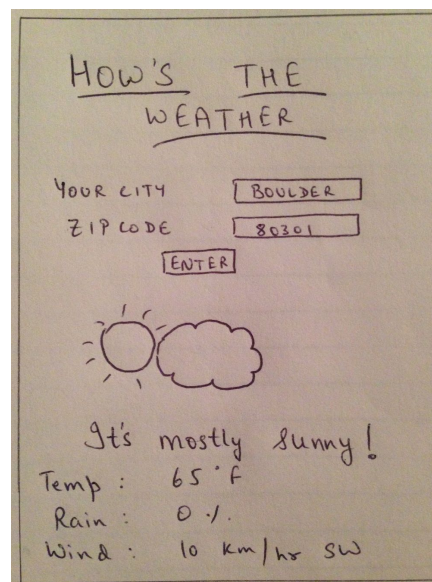 HOW'S THE
WEATHER
YOUR CITY BOULDER
ZIP CODE 80301
ENTER
It's mostly sunny!
Temp : 65°F
Rain : 0 %.
Wind : 10 km/hr SW